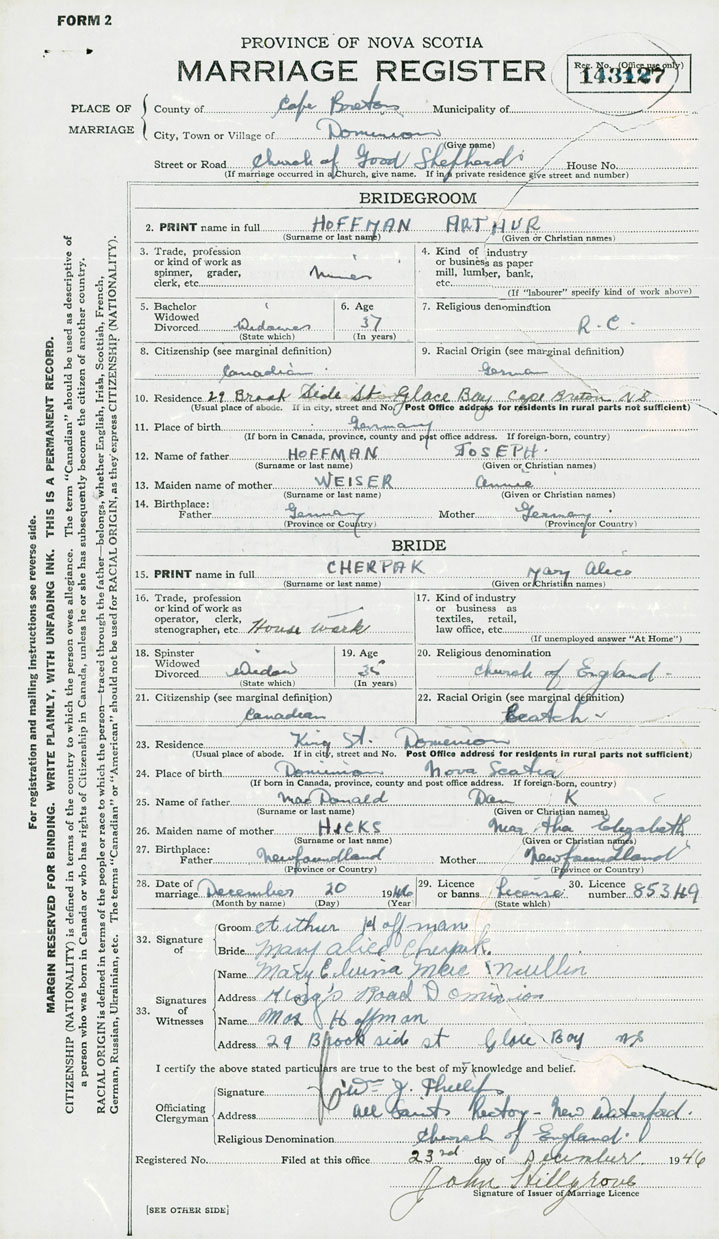 FORM 2
PROVINCE OF NOVA SCOTIA
MARRIAGE REGISTER
Reg. No. (Office use only)
143127
PLACE OF MARRIAGE
County of Cape Breton Municipality of
City, Town or Village of Dominion
(Give name)
Street or Road Church of Good Shepherd House No.
(If marriage occurred in a Church, give name. If in a private residence give street and number)
BRIDEGROOM
2. PRINT name in full HOFFMAN ARTHUR
(Surname or last name) (Given or Christian names)
3. Trade, profession or kind of work as spinner, grader, clerk, etc. Miner
4. Kind of industry or business as paper mill, lumber, bank, etc.
(If "labourer" specify kind of work above)
5. Bachelor Widowed Divorced Widower
(State which)
6. Age 37
(In years)
7. Religious denomination
R.C.
8. Citizenship (see marginal definition)
Canadian
9. Racial Origin (see marginal definition)
German
10. Residence 29 Brook Side St Glace Bay Cape Breton NS
(Usual place of abode. If in city, street and No. Post Office address for residents in rural parts not sufficient)
11. Place of birth Germany
(If born in Canada, province, county and post office address. If foreign-born, country)
12. Name of father HOFFMAN JOSEPH.
(Surname or last name) (Given or Christian names)
13. Maiden name of mother WEISER Annie
(Surname or last name) (Given or Christian names)
14. Birthplace:
Father Germany Mother Germany
(Province or Country) (Province or Country)
BRIDE
15. PRINT name in full CHERPAK Mary Alice
(Surname or last name) (Given or Christian names)
16. Trade, profession or kind of work as operator, clerk, stenographer, etc. House work
17. Kind of industry or business as textiles, retail, law office, etc.
(If unemployed answer "At Home")
18. Spinster Widowed Divorced Widow
(State which)
19. Age 35
(In years)
20. Religious denomination
Church of England
21. Citizenship (see marginal definition)
Canadian
22. Racial Origin (see marginal definition)
Scotch
23. Residence King St. Dominion
(Usual place of abode. If in city, street and No. Post Office address for residents in rural parts not sufficient)
24. Place of birth Dominion Nova Scotia
(If born in Canada, province, county and post office address. If foreign-born, country)
25. Name of father MacDonald Dan K
(Surname or last name) (Given or Christian names)
26. Maiden name of mother HICKS Martha Elizabeth
(Surname or last name) (Given or Christian names)
27. Birthplace:
Father Newfoundland Mother Newfoundland
(Province or Country) (Province or Country)
28. Date of marriage December 20 1946
(Month by name) (Day) (Year)
29. Licence or banns License
(State which)
30. Licence number 85349
32. Signature of
Groom Arthur Hoffman
Bride Mary Alice Cherpak
33. Signatures of Witnesses
Name Mary Edwina MacMullin
Address King's Road Dominion
Name Max Hoffman
Address 29 Brook side st Glace Bay NS
I certify the above stated particulars are true to the best of my knowledge and belief.
Officiating Clergyman
Signature Wm J. Phillips
Address All Saints Rectory - New Waterford.
Religious Denomination Church of England.
Registered No. Filed at this office 23rd day of December 1946
John Hillgrove
Signature of Issuer of Marriage Licence
[SEE OTHER SIDE]
For registration and mailing instructions see reverse side.
MARGIN RESERVED FOR BINDING. WRITE PLAINLY, WITH UNFADING INK. THIS IS A PERMANENT RECORD.
CITIZENSHIP (NATIONALITY) is defined in terms of the country to which the person owes allegiance. The term "Canadian" should be used as descriptive of
a person who was born in Canada or who has rights of Citizenship in Canada, unless he or she has subsequently become the citizen of another country.
RACIAL ORIGIN is defined in terms of the people or race to which the person—traced through the father—belongs, whether English, Irish, Scottish, French,
German, Russian, Ukrainian, etc. The terms "Canadian" or "American" should not be used for RACIAL ORIGIN, as they express CITIZENSHIP (NATIONALITY).